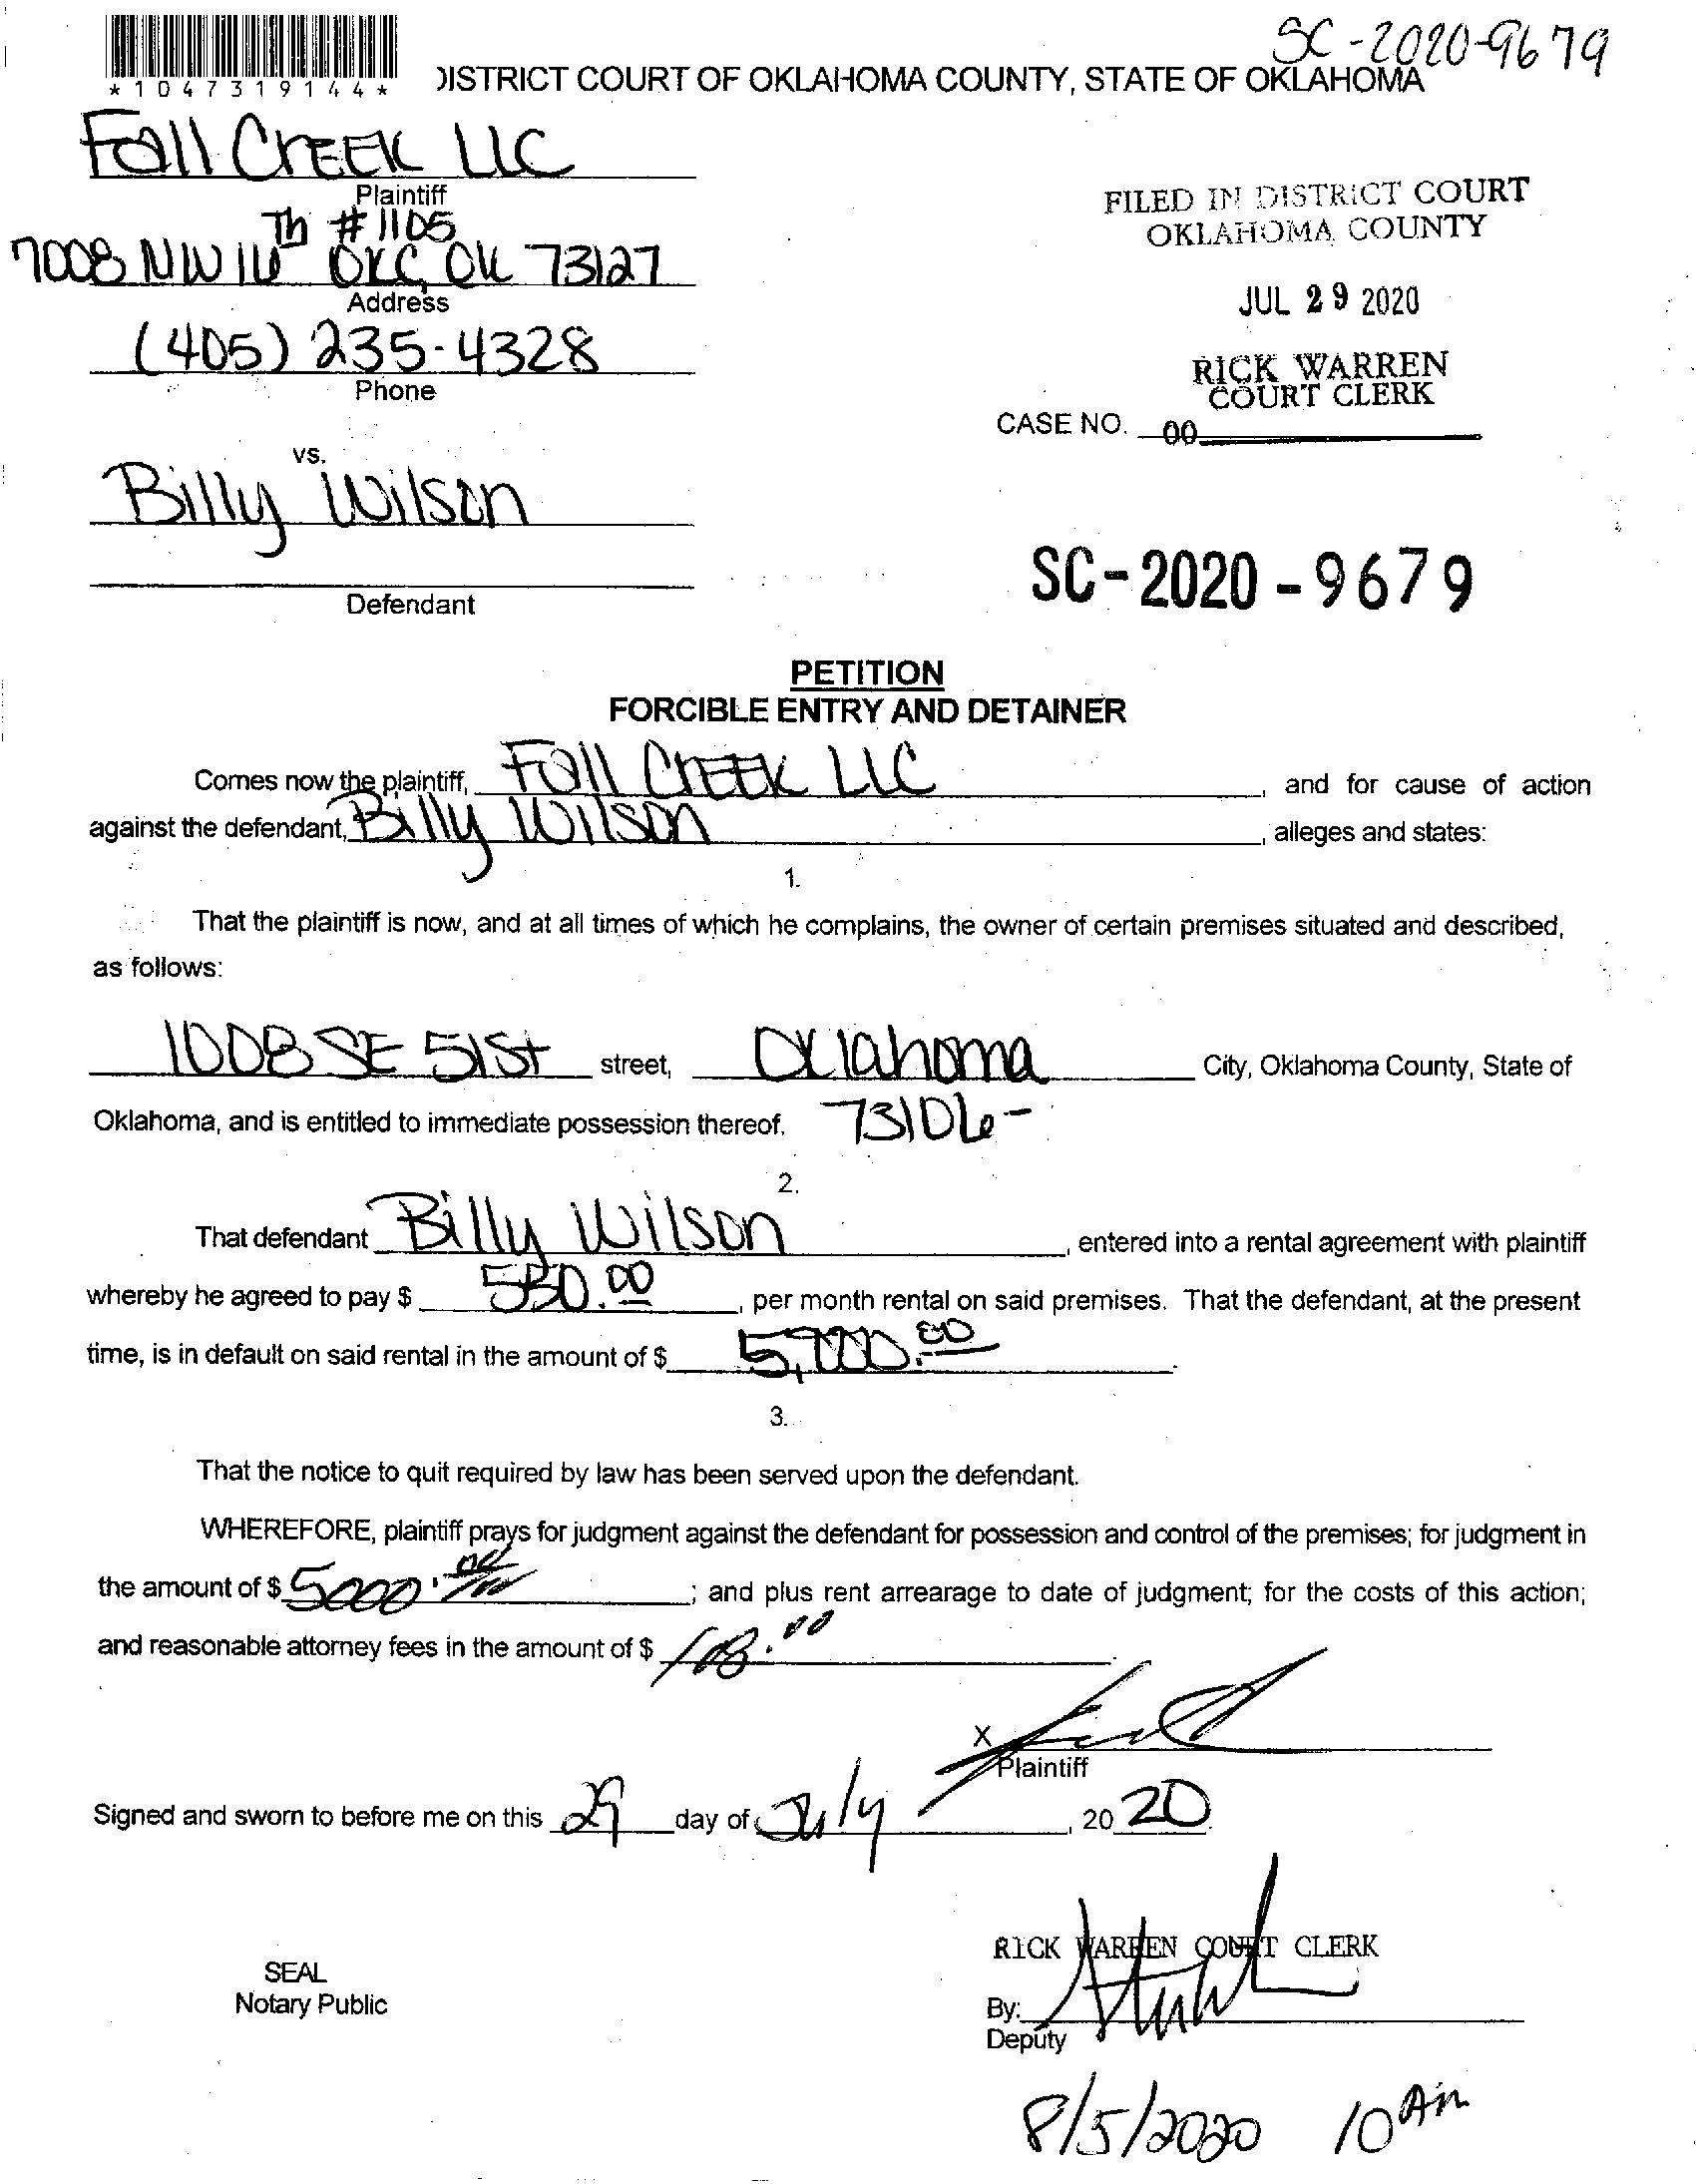 SC-2020-9679
*1047319144*
DISTRICT COURT OF OKLAHOMA COUNTY, STATE OF OKLAHOMA
Fall Creek LLC
Plaintiff
7008 NW 16th #1105 OKC, OK 73127
Address
(405) 235-4328
Phone
FILED IN DISTRICT COURT
OKLAHOMA COUNTY
JUL 29 2020
RICK WARREN
COURT CLERK
CASE NO. 00
vs.
Billy Wilson
Defendant
SC-2020-9679
PETITION
FORCIBLE ENTRY AND DETAINER
Comes now the plaintiff, Fall Creek LLC, and for cause of action
against the defendant, Billy Wilson, alleges and states:
1.
That the plaintiff is now, and at all times of which he complains, the owner of certain premises situated and described,
as follows:
1008 SE 51st street, Oklahoma City, Oklahoma County, State of
Oklahoma, and is entitled to immediate possession thereof. 73106-
2.
That defendant Billy Wilson, entered into a rental agreement with plaintiff
whereby he agreed to pay $ .00, per month rental on said premises. That the defendant, at the present
time, is in default on said rental in the amount of $ 5,000.00.
3.
That the notice to quit required by law has been served upon the defendant.
WHEREFORE, plaintiff prays for judgment against the defendant for possession and control of the premises; for judgment in
the amount of $ 5000.; and plus rent arrearage to date of judgment; for the costs of this action;
and reasonable attorney fees in the amount of $
X
Plaintiff
Signed and sworn to before me on this 29 day of July, 2020.
RICK WARREN COURT CLERK
SEAL
Notary Public
By:
Deputy
8/5/2020 10 AM